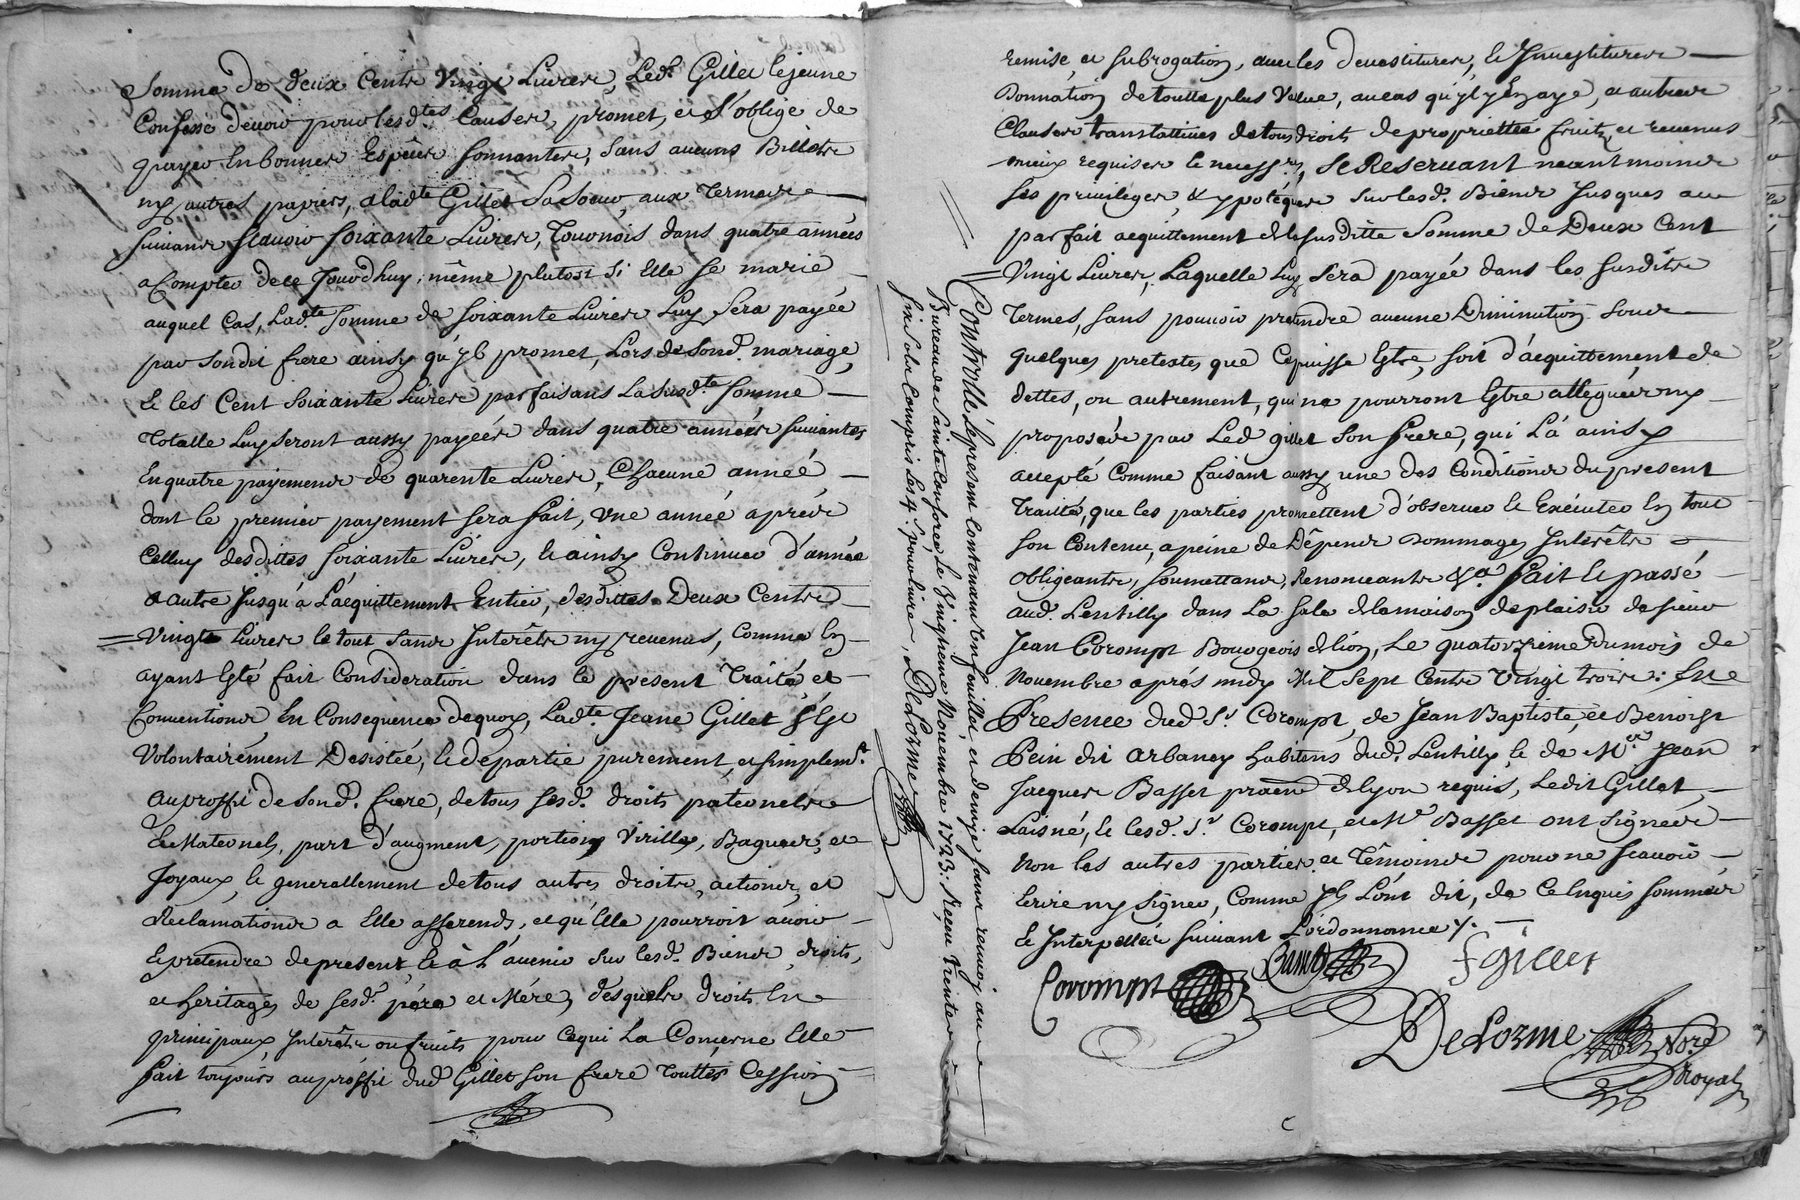 Somme de deux Cents Vingt Livres, Led. Gillet lejeune
Confesse devoir pour lesdtes Causes, promet, et s'oblige de
payer En bonnes Espêces sonnantes, sans aucuns Billets
ny autres papiers, aladte Gillet Sa Soeur, aux Termes
suivans scavoir soixante Livres, Tournois dans quatre années
a Compter dece Jourdhuy, même plutost si Elle se marie
auquel Cas, Ladte somme de soixante Livres Luy Sera payée
par Sondit frere ainsy qu'yl promet, Lors de Sond. mariage,
Et les Cent Soixante Livres parfaisans La Susdte somme
Totalle Luy Seront aussy payeés dans quatre années suivantes
En quatre payemens de quarente Livres, Chacune anneé
dont le premier payement sera fait, Une anneé aprés
Celluy desdittes soixante Livres, et ainsy Continuer d'année
a autre Jusqu'à L'acquittement Entier, desdittes Deux Cents
Vingt Livres le tout Sans Interêts ny revenus, Comme En
ayant Esté fait Considération dans le présent Traité et
Conventions, En Consequence dequoy, Ladte Jeane Gillet s'est
Volontairement Desistée, et départie purement, et simplemt.
au proffit de Sond. frere, de tous sesd. droits paternels
Et Maternels, part d'augment, portion Virille, Bagues, et
Joyaux, et generallement de tous autres droits, actions, et
Réclamations a Elle afferends, et qu'Elle pourroit avoir
Et prétendre de present et à L'avenir sur lesd. Biens, droits,
et heritages de sesd. pére et Mére, desquels droits En
principaux, Interêts ou fruits pour cequi La Concerne Elle
fait toujours au proffit dud. Gillet son frere Touttes Cession
Controllé Le present Contenant En feuillet, et demye sans renvoy au
Bureau de Sainte Consorce, Le Vingtieme Novembre 1723. Reçu Trente
six sols Compris Les 4. s. pour livre, DeLorme
remise, et subrogation, avec les devestitures, et Investitures
Donnation de toutte plus Value, aucas qu'yl y En aye, et autres
Clauses translatives de tous droits de propriettés fruits, et revenus
mieux requises et necessres, Se Reservant neantmoins
ses privileges, & ypotéques sur lesd. Biens Jusques au
parfait acquittement de la susditte Somme de Deux Cent
Vingt Livres, Laquelle Luy Sera payée dans les susdits
Termes, sans pouvoir pretendre aucune Diminution sous
quelques pretextes que Ce puisse Estre, soit d'acquittement de
dettes, ou autrement, qui ne pourront Estre alleguées ny
proposées par Led. gillet son frere, qui L'a ainsy
accepté Comme faisant aussy une des Conditions du present
Traitté, que les parties promettent d'observer et Exécuter En tout
son Contenu, apeine de Dépens Dommages Interêts
obligeants, soumettans, Renonceants &ca. fait et passé
aud. Lentilly dans La Sale de la maison de plaisir de sieur
Jean Corompt Bourgeois de lion, Le quatorzieme du mois de
Novembre aprés midy Mil Sept Cents Vingt trois. En
Presence dud. Sr. Corompt, de Jean Baptiste, et Benoist
Pein dit arbaney habitans dud. Lentilly, et de Mre. Jean
Jacques Basset de lyon requis, Ledit Gillet
Laisné, et lesd. Sr. Corompt, et Mr. Basset ont Signés
non les autres parties et Témoins pour ne scavoir
Ecrire ny Signer, Comme Yls L'ont dit, de Ce Enquis sommés
Et Interpellés suivant L'ordonnance
Corompt Basset f gillet
DeLorme Nore
Royal